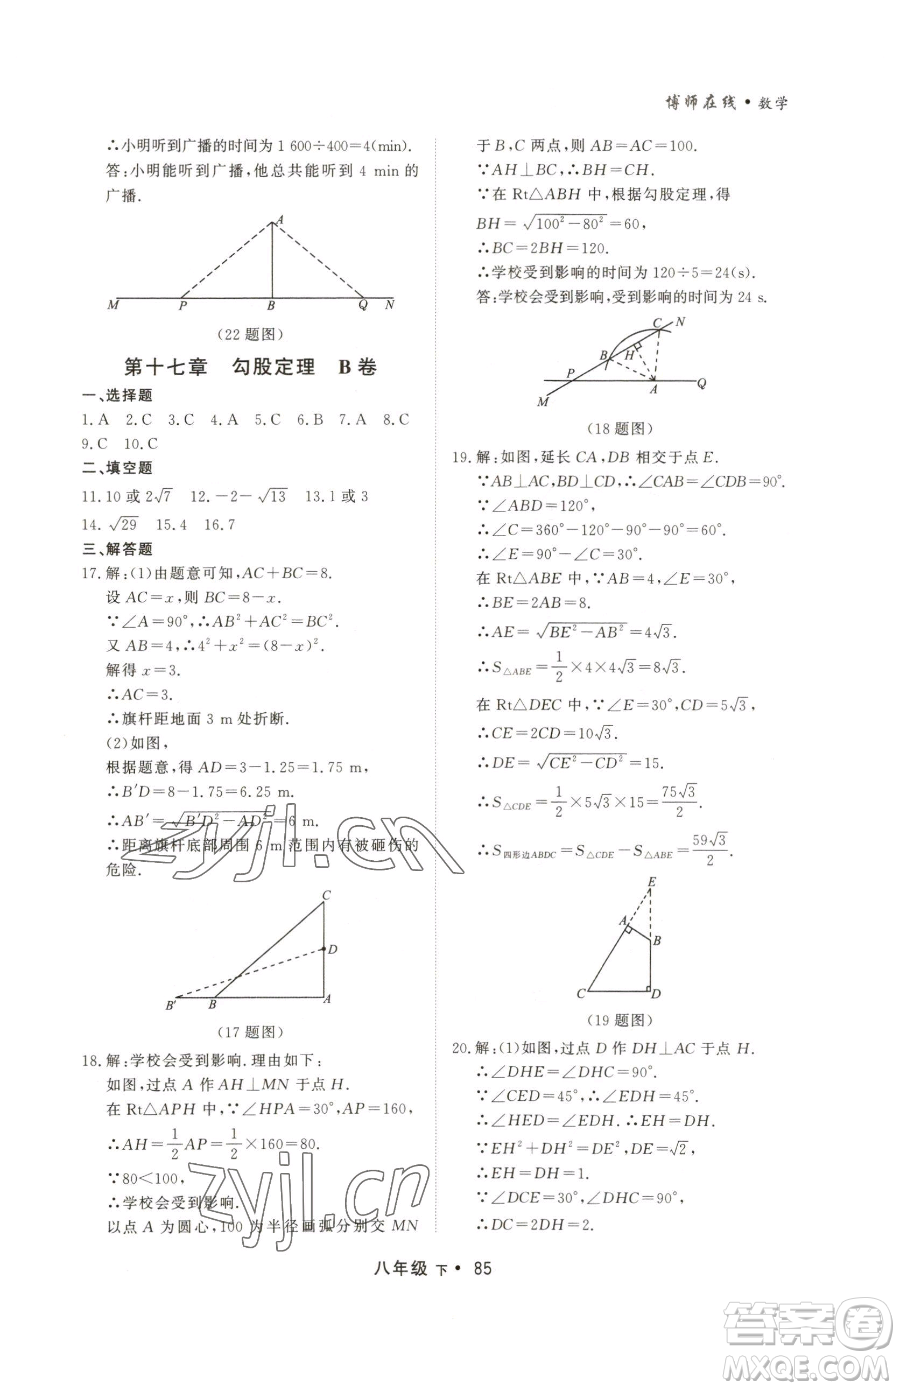 博师在线·数学
∴小明听到广播的时间为 1 600÷400=4(min).
答:小明能听到广播,他总共能听到 4 min 的
广播.
A
M P B Q N
(22 题图)
第十七章 勾股定理 B 卷
一、选择题
1.A 2.C 3.C 4.A 5.C 6.B 7.A 8.C
9.C 10.C
二、填空题
11.10 或 2√7 12.-2-√13 13.1 或 3
14.√29 15.4 16.7
三、解答题
17.解:(1)由题意可知,AC+BC=8.
设 AC=x,则 BC=8-x.
∵∠A=90°,∴AB²+AC²=BC².
又 AB=4,∴4²+x²=(8-x)².
解得 x=3.
∴AC=3.
∴旗杆距地面 3 m 处折断.
(2)如图,
根据题意,得 AD=3-1.25=1.75 m,
∴B′D=8-1.75=6.25 m.
∴AB′=√(B′D²-AD²)=6 m.
∴距离旗杆底部周围 6 m 范围内有被砸伤的
危险.
C
D
B′ B A
(17 题图)
18.解:学校会受到影响.理由如下:
如图,过点 A 作 AH⊥MN 于点 H.
在 Rt△APH 中,∵∠HPA=30°,AP=160,
∴AH=1/2AP=1/2×160=80.
∵80<100,
∴学校会受到影响.
以点 A 为圆心,100 为半径画弧分别交 MN
于 B,C 两点,则 AB=AC=100.
∵AH⊥BC,∴BH=CH.
∵在 Rt△ABH 中,根据勾股定理,得
BH=√(100²-80²)=60,
∴BC=2BH=120.
∴学校受到影响的时间为 120÷5=24(s).
答:学校会受影响,受到影响的时间为 24 s.
C N
B H
P A Q
M
(18 题图)
19.解:如图,延长 CA,DB 相交于点 E.
∵AB⊥AC,BD⊥CD,∴∠CAB=∠CDB=90°.
∵∠ABD=120°,
∴∠C=360°-120°-90°-90°=60°.
∴∠E=90°-60°=30°.
在 Rt△ABE 中,∵AB=4,∠E=30°,
∴BE=2AB=8.
∴AE=√(BE²-AB²)=4√3.
∴S△ABE=1/2×4×4√3=8√3.
在 Rt△DEC 中,∵∠E=30°,CD=5√3,
∴CE=2CD=10√3.
∴DE=√(CE²-CD²)=15.
∴S△CDE=1/2×5√3×15=75√3/2.
∴S四形边ABDC=S△CDE-S△ABE=59√3/2.
E
A
B
C D
(19 题图)
20.解:(1)如图,过点 D 作 DH⊥AC 于点 H.
∴∠DHE=∠DHC=90°.
∵∠CED=45°,∴∠EDH=45°.
∴∠HED=∠EDH.∴EH=DH.
∵EH²+DH²=DE²,DE=√2,
∴EH=DH=1.
∵∠DCE=30°,∠DHC=90°,
∴DC=2DH=2.
八年级 下·85
zyjl.cn
zyjl.cn
答案圈
MXQE.COM